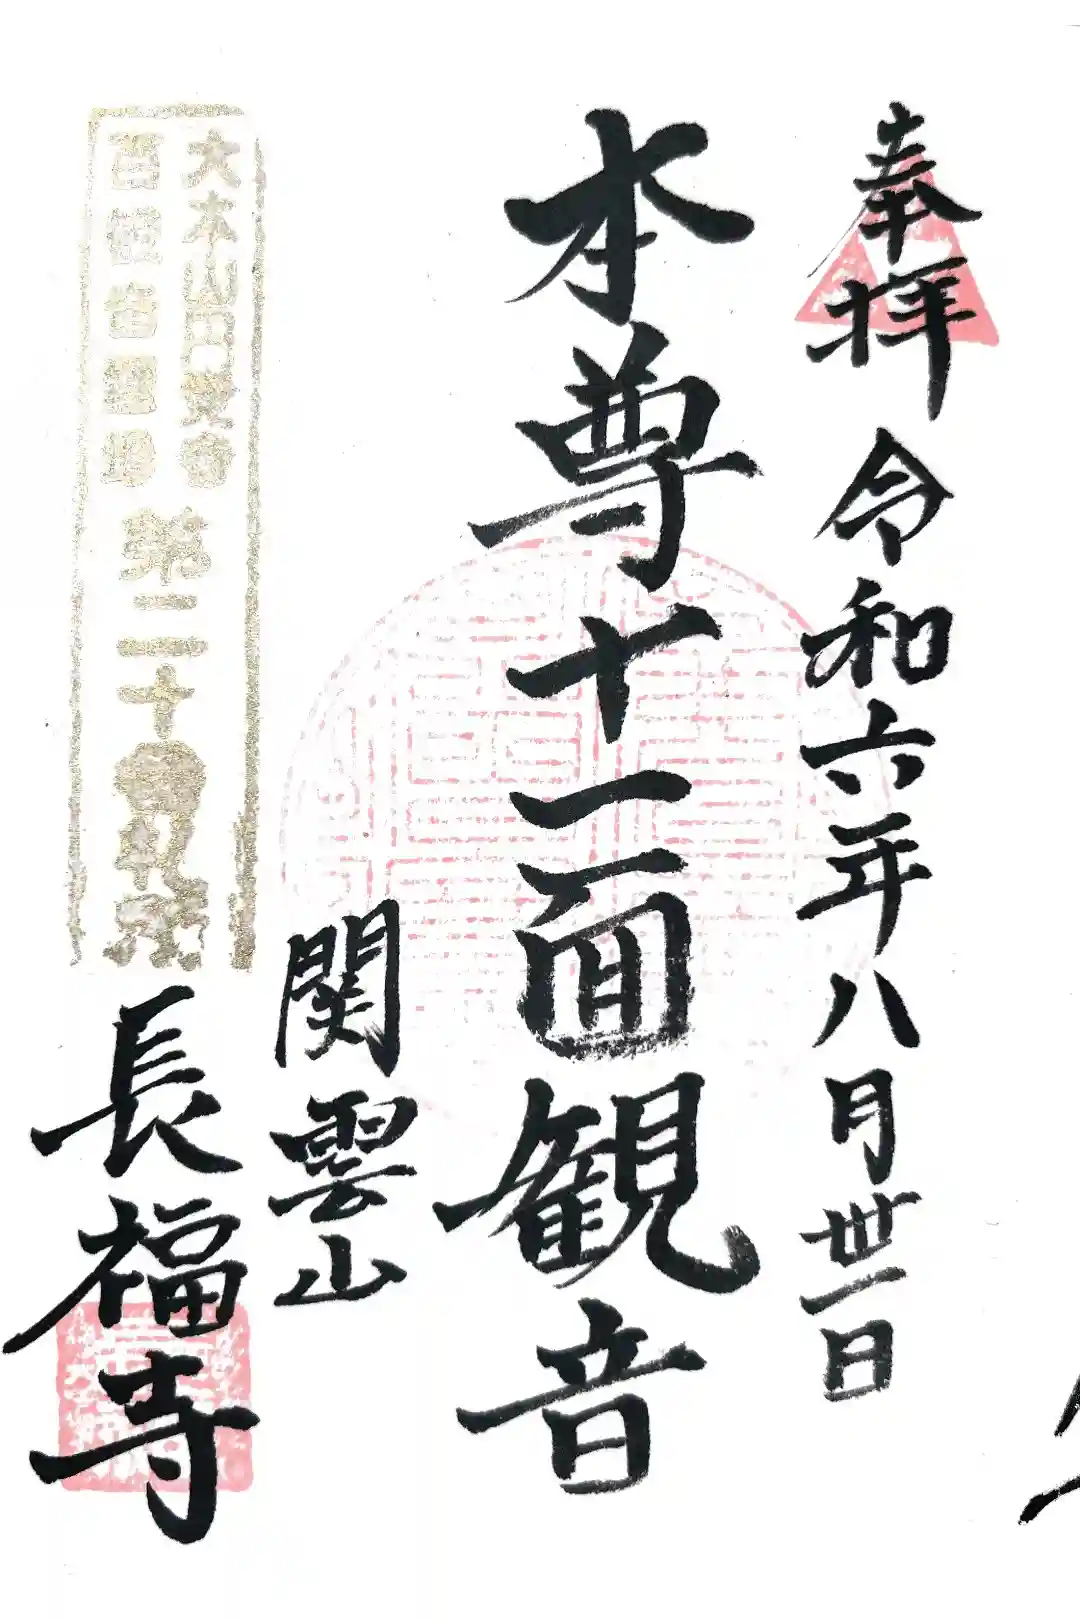 奉拝 令和六年八月卅一日
本尊十一面観音
関雲山
大本山円覚寺
百観音霊場
第二十番札所
長福寺